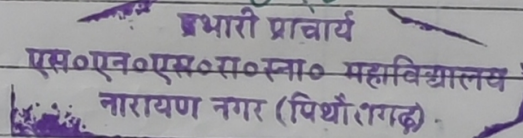 प्रभारी प्राचार्य
एस०एन०एस०रा०स्ना० महाविद्यालय
नारायण नगर (पिथौरागढ़).